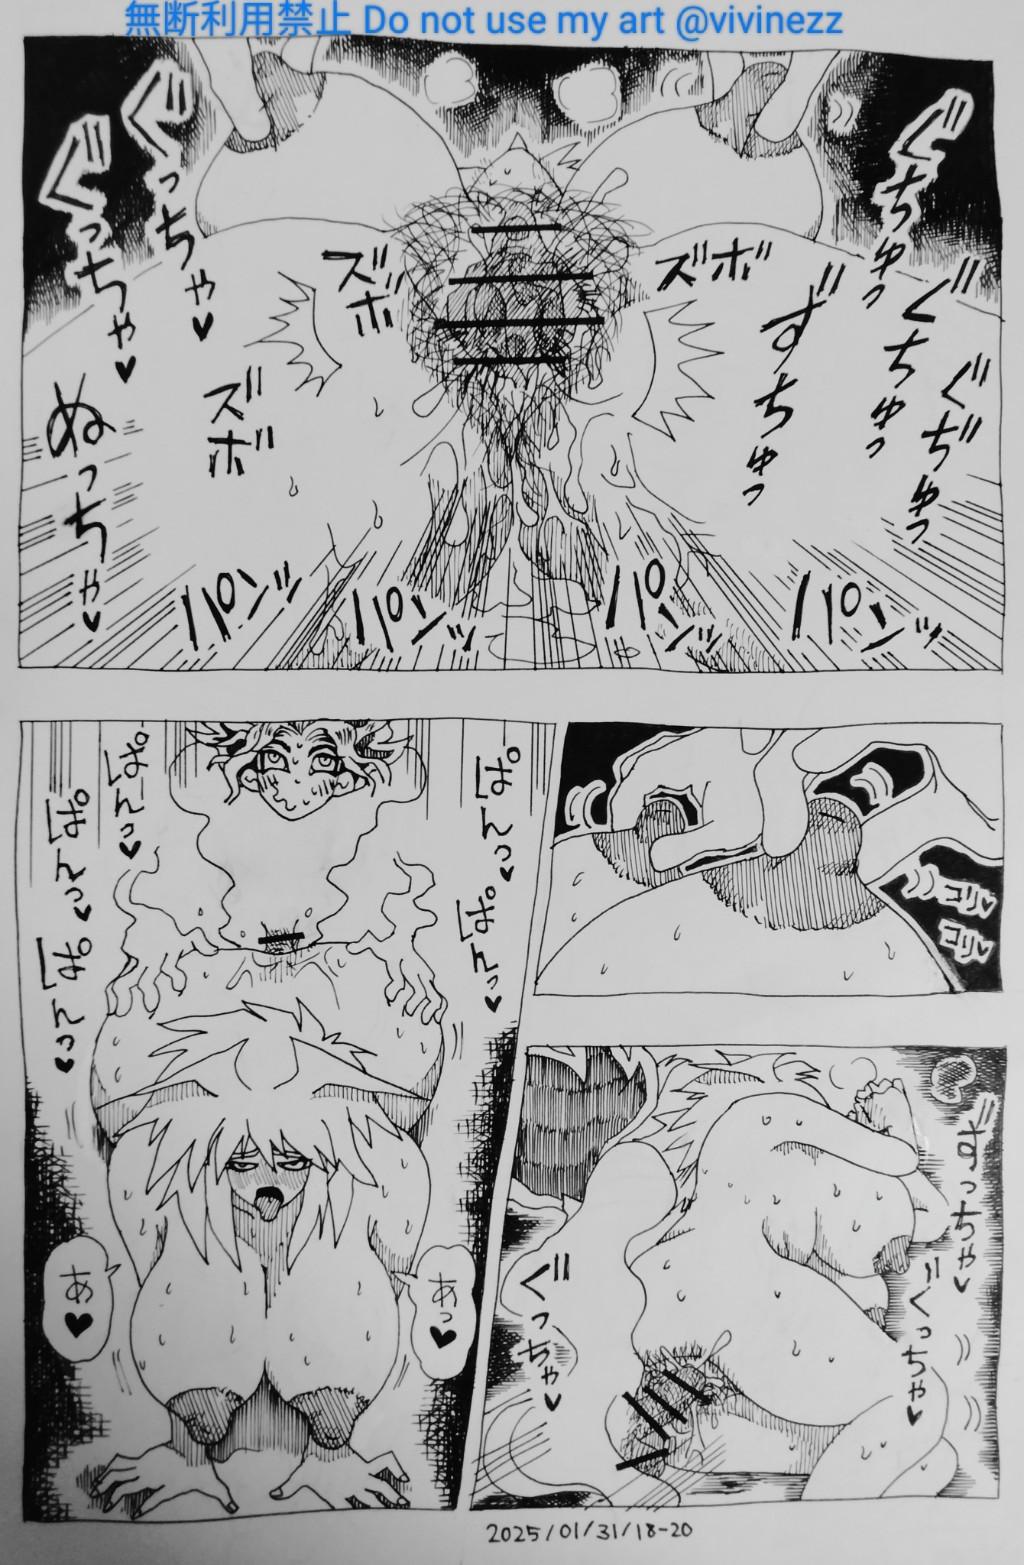 無断利用禁止 Do not use my art @vivinezz
ぐちゅっ
ぐちゅっ
ぐぢゅっ
ずちゅっ
ズボ
ズボ
ズボ
ぐっちゃ♥
ぐっちゃ♥
ぬっちゃ♥
パンッ
パンッ
パンッ
パンッ
ぱんっ♥
ぱんっ♥
ぱんっ♥
ぱんっ♥
ぱんっ♥
あっ♥
あ♥
ぐっちゃ♥
ぐっちゃ♥
2025/01/31/18-20